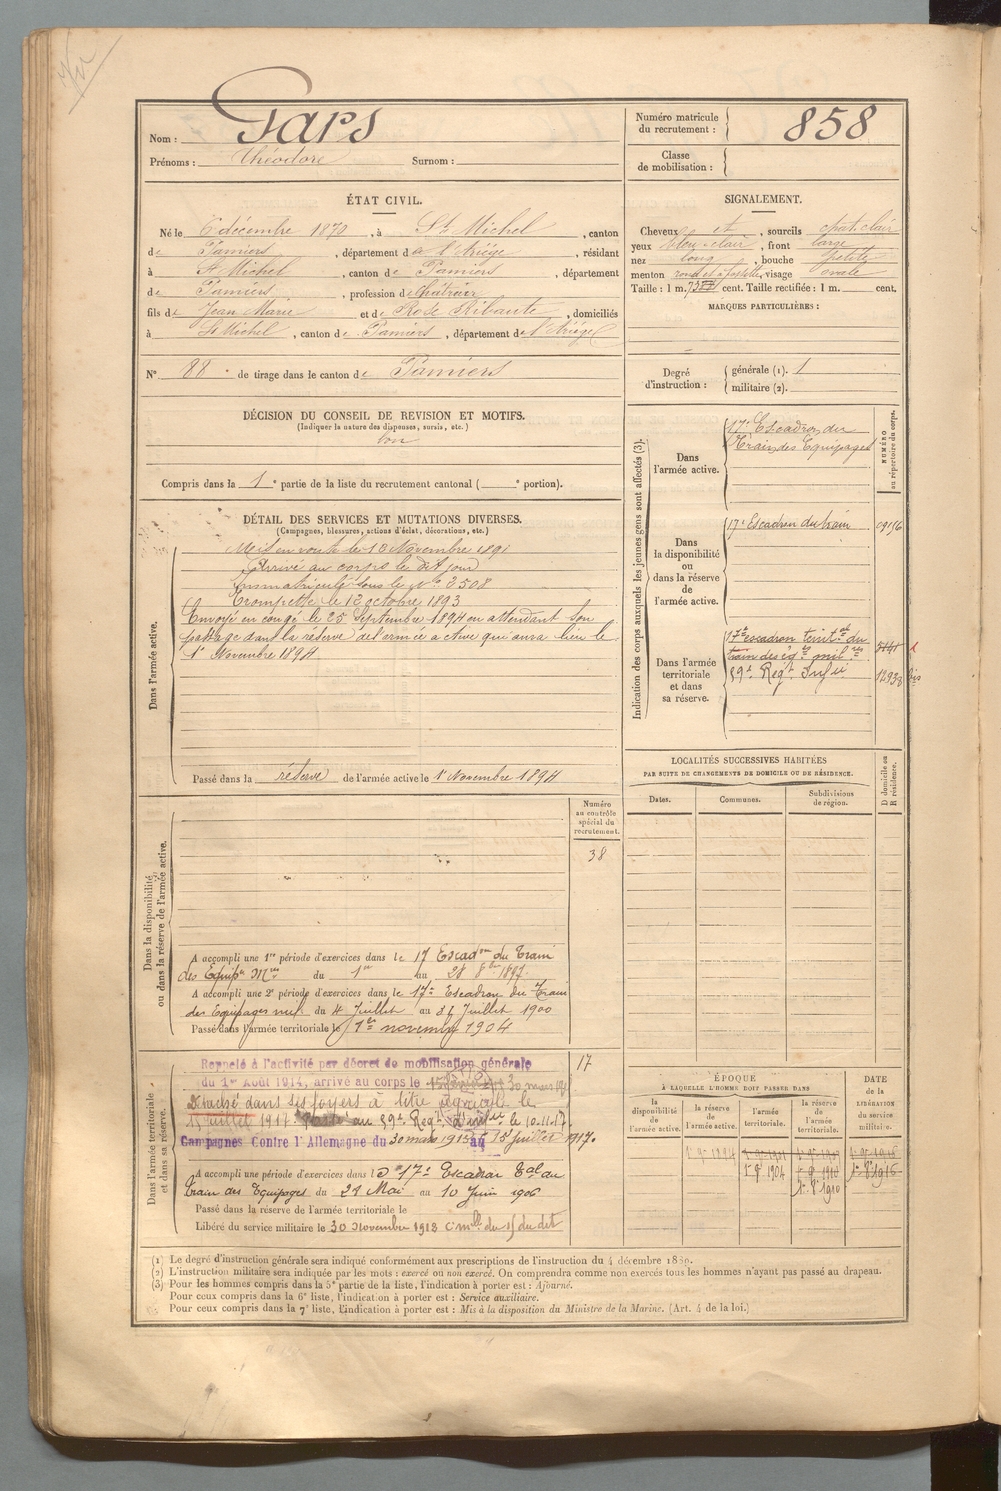 Nom : Pars
Prénoms : Théodore Surnom :
Numéro matricule du recrutement : 858
Classe de mobilisation :
ÉTAT CIVIL.
Né le 6 décembre 1870, à St Michel, canton
de Pamiers, département de l'Ariège, résidant
à St Michel, canton de Pamiers, département
de Pamiers, profession de
fils de Jean Marie et de Rose Ribaute, domiciliés
à St Michel, canton de Pamiers, département de l'Ariège
N° 88 de tirage dans le canton de Pamiers
SIGNALEMENT.
Cheveux et, sourcils chat. clair
yeux bleu-clair, front large
nez long, bouche petite
menton rond et à fossette, visage ovale
Taille : 1 m. cent. Taille rectifiée : 1 m. cent.
MARQUES PARTICULIÈRES :
Degré d'instruction : générale (1). 1
militaire (2).
DÉCISION DU CONSEIL DE REVISION ET MOTIFS.
(Indiquer la nature des dispenses, sursis, etc.)
bon
Compris dans la 1e partie de la liste du recrutement cantonal ( e portion).
DÉTAIL DES SERVICES ET MUTATIONS DIVERSES.
(Campagnes, blessures, actions d'éclat, décorations, etc.)
Dans l'armée active.
Mis en route le 10 Novembre 1891
Arrivé au corps le dit jour
Immatriculé sous le N° 2508
Trompette le 12 octobre 1893
Envoyé en congé le 25 Septembre 1894 en attendant son
passage dans la réserve de l'armée active qui aura lieu le
1er Novembre 1894
Passé dans la réserve de l'armée active le 1er Novembre 1894
Dans la disponibilité ou dans la réserve de l'armée active.
Numéro au contrôle spécial du recrutement.
38
A accompli une 1re période d'exercices dans le 17 Escadon du Train
des Equipes Mres du 1er au 28 8bre 1897
A accompli une 2e période d'exercices dans le 17e Escadron du Train
des Equipages mil du 4 Juillet au 31 Juillet 1900
Passé dans l'armée territoriale le 1er novembre 1904
Dans l'armée territoriale et dans sa réserve.
Rappelé à l'activité par décret de mobilisation générale
du 1er Août 1914, arrivé au corps le 30 mars 1915
Détaché dans ses foyers à titre agricole le
15 juillet 1917. Passé au 59e Regt d'infrie le 10.11.17.
Campagnes Contre l'Allemagne du 30 mars 1915 au 15 Juillet 1917.
17
A accompli une période d'exercices dans le 17e Escadron Tal du
Train des Equipages du 21 Mai au 10 Juin 1906
Passé dans la réserve de l'armée territoriale le
Libéré du service militaire le 30 Novembre 1918 du dit
Indication des corps auxquels les jeunes gens sont affectés (3).
NUMÉRO au répertoire du corps.
Dans l'armée active.
17e Escadron du
Train des Equipages
Dans la disponibilité ou dans la réserve de l'armée active.
17e Escadron du train
Dans l'armée territoriale et dans sa réserve.
17e escadron territal du
train des éqges milres
59e Regt Infie 12938 bis
LOCALITÉS SUCCESSIVES HABITÉES
PAR SUITE DE CHANGEMENTS DE DOMICILE OU DE RÉSIDENCE.
Dates. Communes. Subdivisions de région. D domicile ou R résidence.
ÉPOQUE
À LAQUELLE L'HOMME DOIT PASSER DANS
la disponibilité de l'armée active. la réserve de l'armée active. l'armée territoriale. la réserve de l'armée territoriale.
DATE de la LIBÉRATION du service militaire.
(1) Le degré d'instruction générale sera indiqué conformément aux prescriptions de l'instruction du 4 décembre 1889.
(2) L'instruction militaire sera indiquée par les mots : exercé ou non exercé. On comprendra comme non exercés tous les hommes n'ayant pas passé au drapeau.
(3) Pour les hommes compris dans la 5e partie de la liste, l'indication à porter est : Ajourné.
Pour ceux compris dans la 6e liste, l'indication à porter est : Service auxiliaire.
Pour ceux compris dans la 7e liste, l'indication à porter est : Mis à la disposition du Ministre de la Marine. (Art. 4 de la loi.)